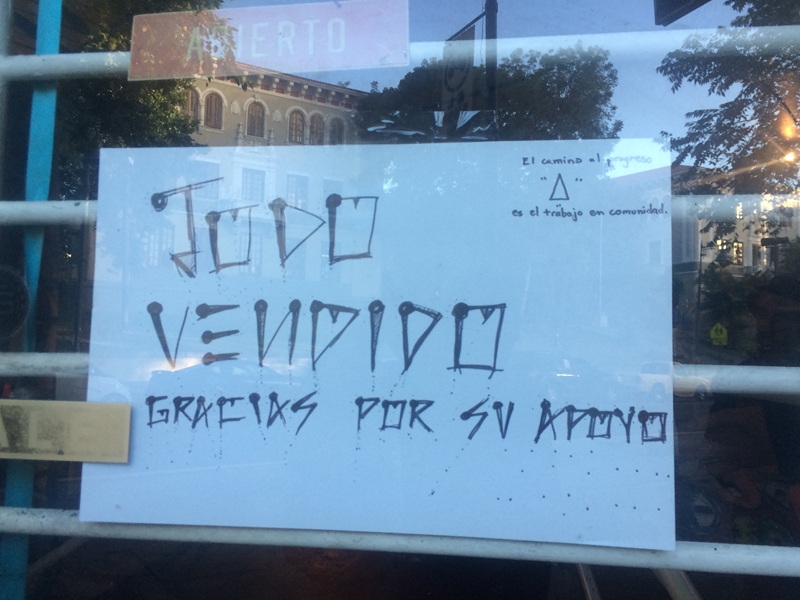 ABIERTO
El camino al progreso
" Δ "
es el trabajo en comunidad.
TODO
VENDIDO
GRACIAS POR SU APOYO